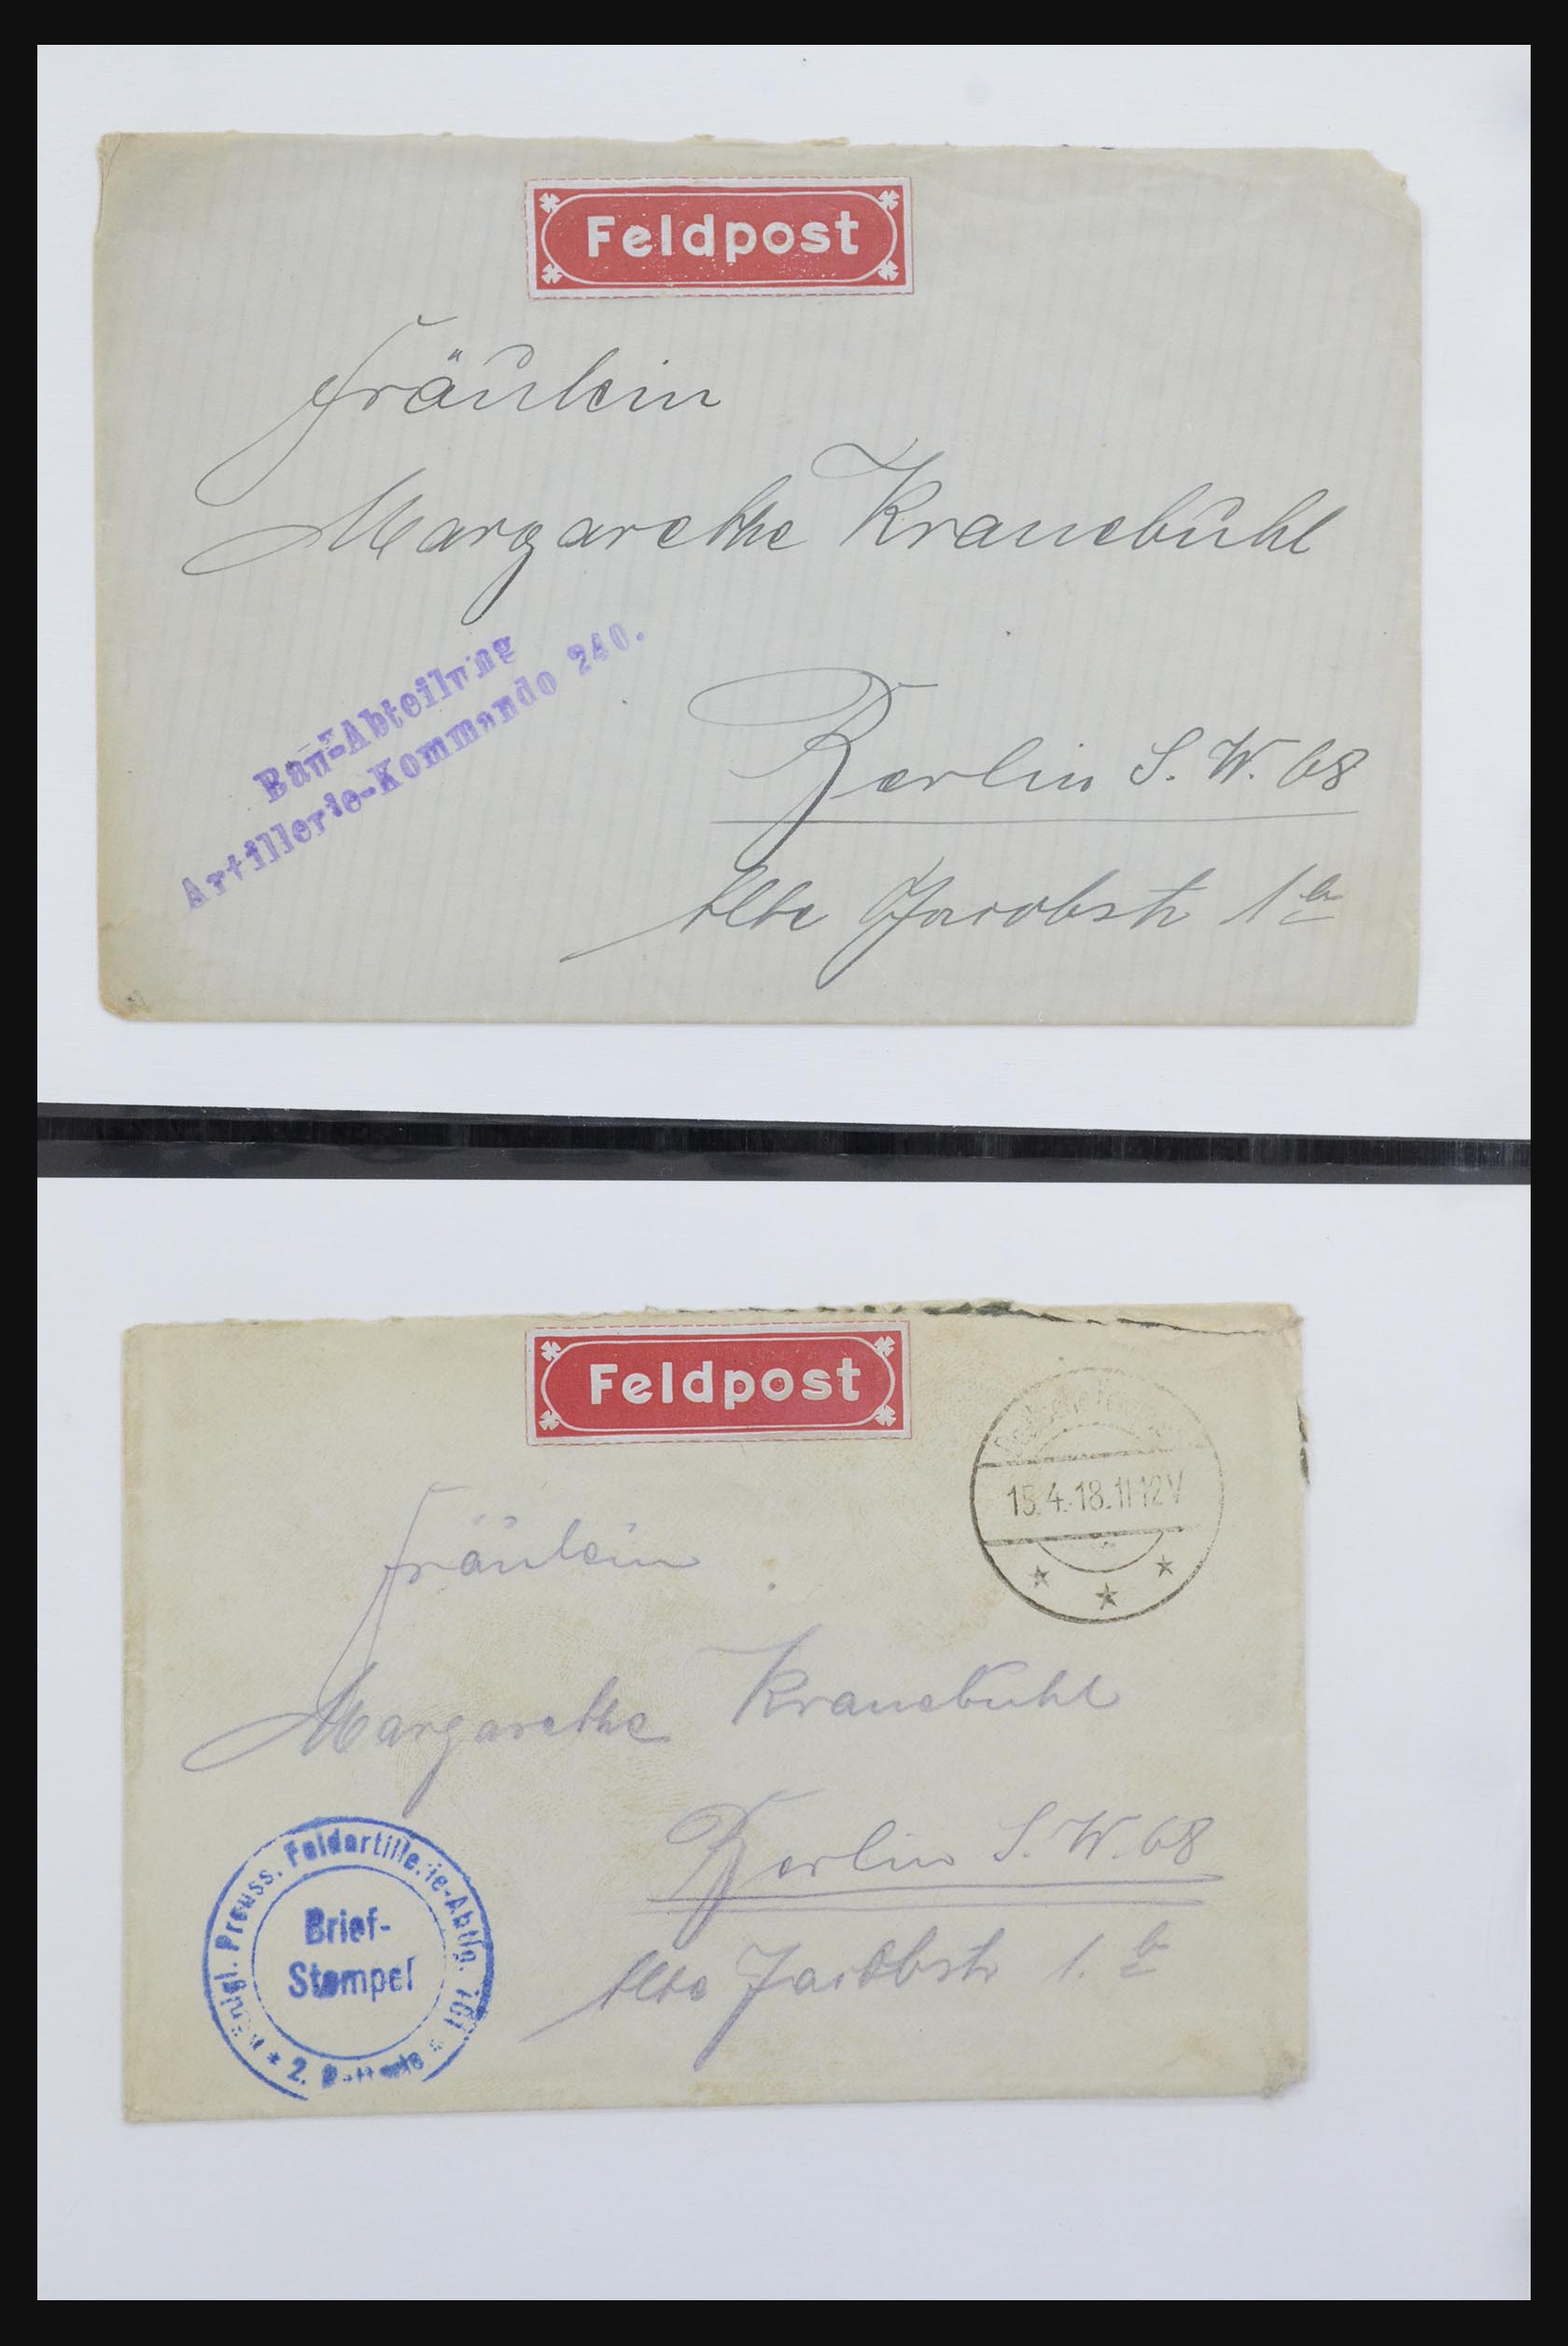 Feldpost
Fräulein
Margarethe Kranebühl
Bau-Abteilung
Artillerie-Kommando 240.
Berlin S.W. 68
Alte Jacobstr 1a
Feldpost
15.4.18.11-12V
Fräulein
Margarethe Kranebühl
Berlin S.W. 68
Alte Jacobstr 1.
Preuss. Feldartillerie-Abtlg.
Brief-
Stempel
2.